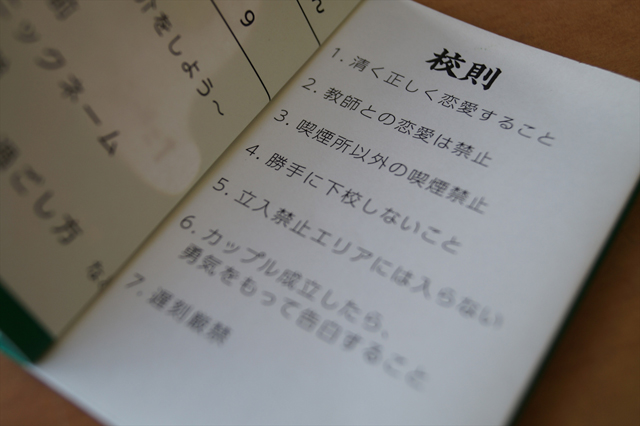 ん
9
介をしよう〜
ックネーム
過ごし方
校則
1. 清く正しく恋愛すること
2. 教師との恋愛は禁止
3. 喫煙所以外の喫煙禁止
4. 勝手に下校しないこと
5. 立入禁止エリアには入らない
6. カップル成立したら、
勇気をもって告白すること
7. 遅刻厳禁